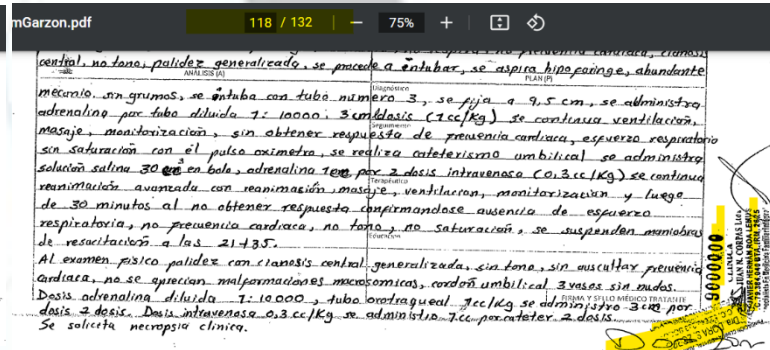 mGarzon.pdf
118 / 132
75%
central, no tono, palidez generalizada, se procede a entubar, se aspira hipofaringe, abundante
ANÁLISIS (A)
PLAN (P)
Diagnóstico
meconio. sin grumos, se entuba con tubo numero 3, se fija a 9,5 cm, se administra
adrenalina por tubo diluida 1: 10000: 3 cm/dosis (1cc/Kg) se continua ventilación,
Seguimiento
masaje, monitorización, sin obtener respuesta de frecuencia cardiaca, esfuerzo respiratorio
sin saturación con el pulso oximetro, se realiza cateterismo umbilical se administra
solución salina 30 en bolo, adrenalina 1cm por 2 dosis intravenosa (0,3 cc/Kg) se continua
Terapéutico
reanimación avanzada con reanimasión, masaje, ventilacion, monitorizacion y luego
de 30 minutos al no obtener respuesta confirmandose ausencia de esfuerzo
respiratorio, no frecuencia cardiaca, no tono, no saturación, se suspenden maniobras
Educación
de resucitación a las 21+35.
Al examen físico palidez con cianosis central generalizada, sin tono, sin auscultar frecuencia
cardiaca, no se aprecian malformaciones macrosomicas, cordón umbilical 3 vasos sin nudos.
FIRMA Y SELLO MÉDICO TRATANTE
Dosis adrenalina diluida 1: 10000, tubo orotraqueal 1cc/Kg se administro 3 cm por
dosis 2 dosis. Dosis intravenosa 0,3 cc/Kg se administro 1cc por cateter 2 dosis.
Se solicita necropsia clinica.
CLINICA
JUAN N. CORPAS Ltda.
JAVIER HERNAN ROA LEMUS